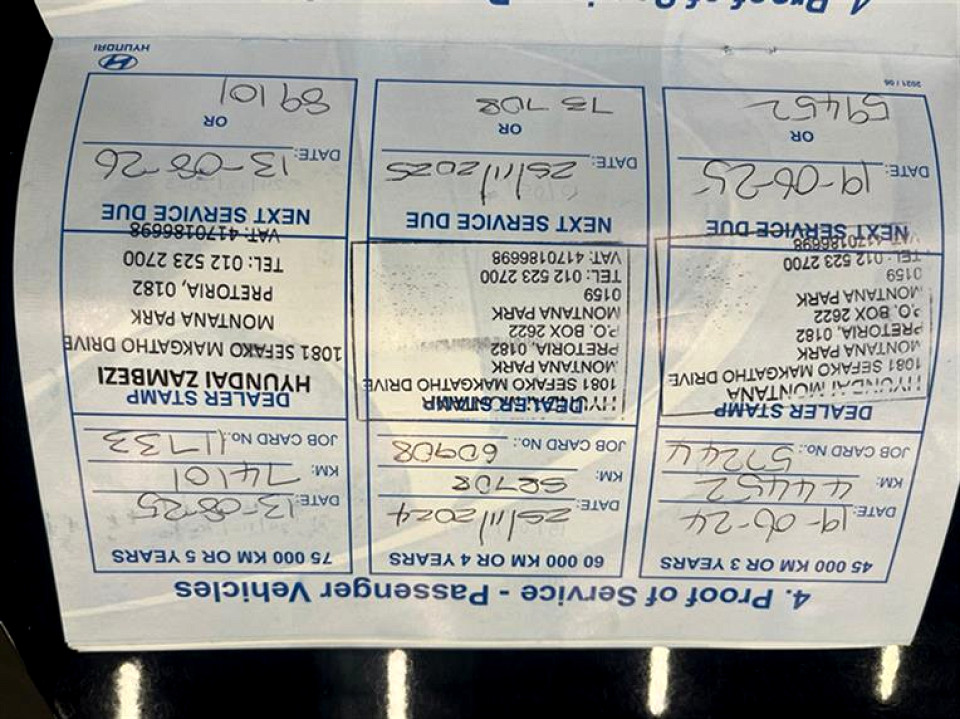 4. Proof of Service - Passenger Vehicles
45 000 KM OR 3 YEARS
DATE: 19-06-24
KM: 44452
JOB CARD No.: 57244
DEALER STAMP
HYUNDAI MONTANA
1081 SEFAKO MAKGATHO DRIVE
MONTANA PARK
PRETORIA, 0182
P.O. BOX 2622
MONTANA PARK
0159
TEL: 012 523 2700
VAT: 4170186698
NEXT SERVICE DUE
DATE: 19-06-25
OR
59452
2021 / 06
60 000 KM OR 4 YEARS
DATE: 25/11/2024
KM: 58708
JOB CARD No.: 60908
DEALER STAMP
HYUNDAI MONTANA
1081 SEFAKO MAKGATHO DRIVE
MONTANA PARK
PRETORIA, 0182
P.O. BOX 2622
MONTANA PARK
0159
TEL: 012 523 2700
VAT: 4170186698
NEXT SERVICE DUE
DATE: 25/11/2025
OR
73 708
75 000 KM OR 5 YEARS
DATE: 13-08-25
KM: 74101
JOB CARD No.: 11733
DEALER STAMP
HYUNDAI ZAMBEZI
1081 SEFAKO MAKGATHO DRIVE
MONTANA PARK
PRETORIA, 0182
TEL: 012 523 2700
VAT: 4170186698
NEXT SERVICE DUE
DATE: 13-08-26
OR
89101
HYUNDAI
4. Proof of Service